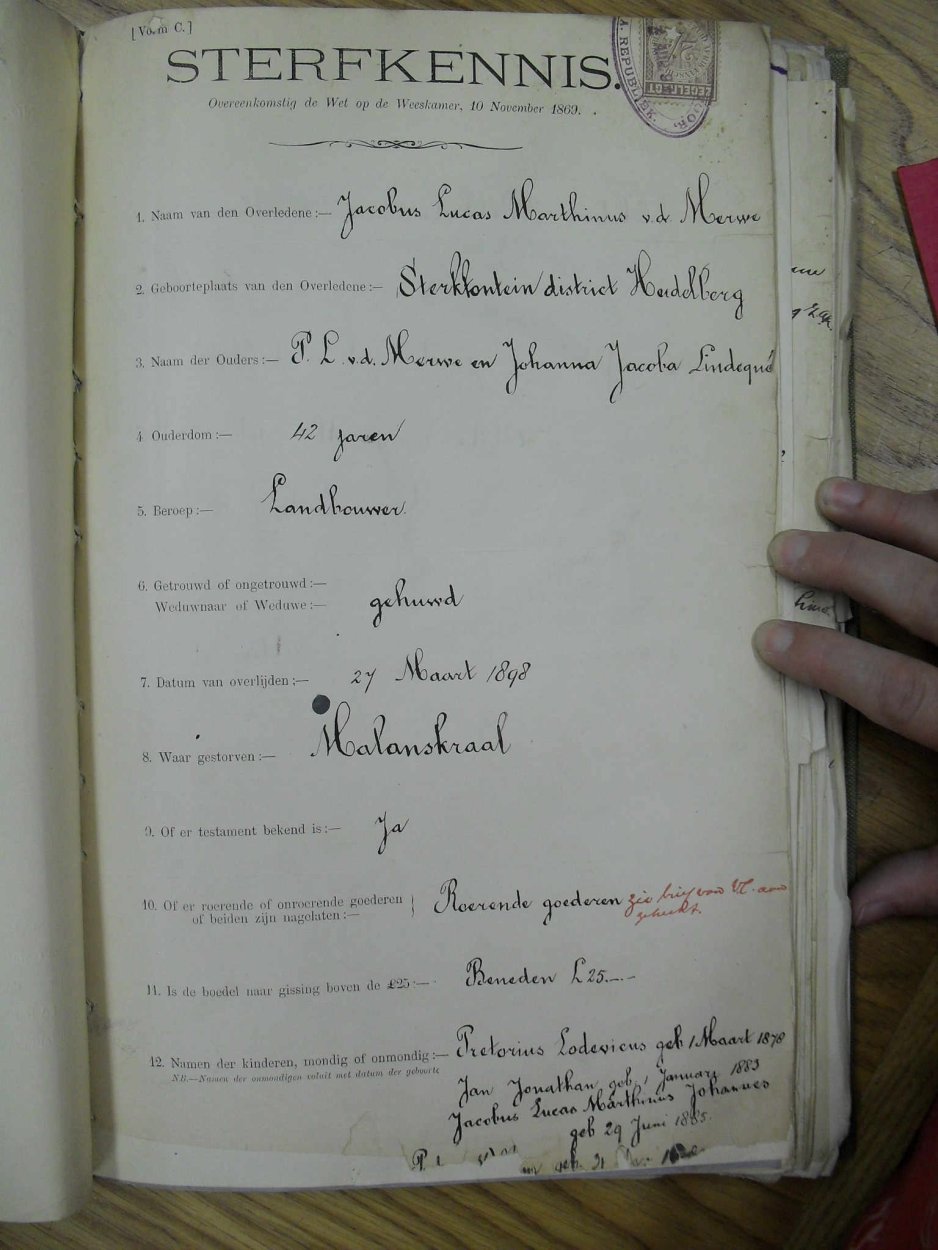 [Vorm C.]
STERFKENNIS.
Overeenkomstig de Wet op de Weeskamer, 10 November 1869.
A. REPUBLIEK.
ZEGELREGT
1. Naam van den Overledene:— Jacobus Lucas Marthinus v.d. Merwe
2. Geboorteplaats van den Overledene:— Sterkfontein district Heidelberg
3. Naam der Ouders:— P. L. v.d. Merwe en Johanna Jacoba Lindequé
4. Ouderdom:— 42 jaren
5. Beroep:— Landbouwer.
6. Getrouwd of ongetrouwd:—
Weduwnaar of Weduwe:— gehuwd
7. Datum van overlijden:— 27 Maart 1898
8. Waar gestorven:— Malanskraal
9. Of er testament bekend is:— Ja
10. Of er roerende of onroerende goederen
of beiden zijn nagelaten:— Roerende goederen zie brief van VC. aan
gehecht.
11. Is de boedel naar gissing boven de £25:— Beneden £25.—
12. Namen der kinderen, mondig of onmondig:— Pretorius Lodevicus geb 1 Maart 1878
NB.—Namen der onmondigen voluit met datum der geboorte
Jan Jonathan geb. 1 Januari 1883
Jacobus Lucas Marthinus Johannes
geb 29 Juni 1885.
geb. 31